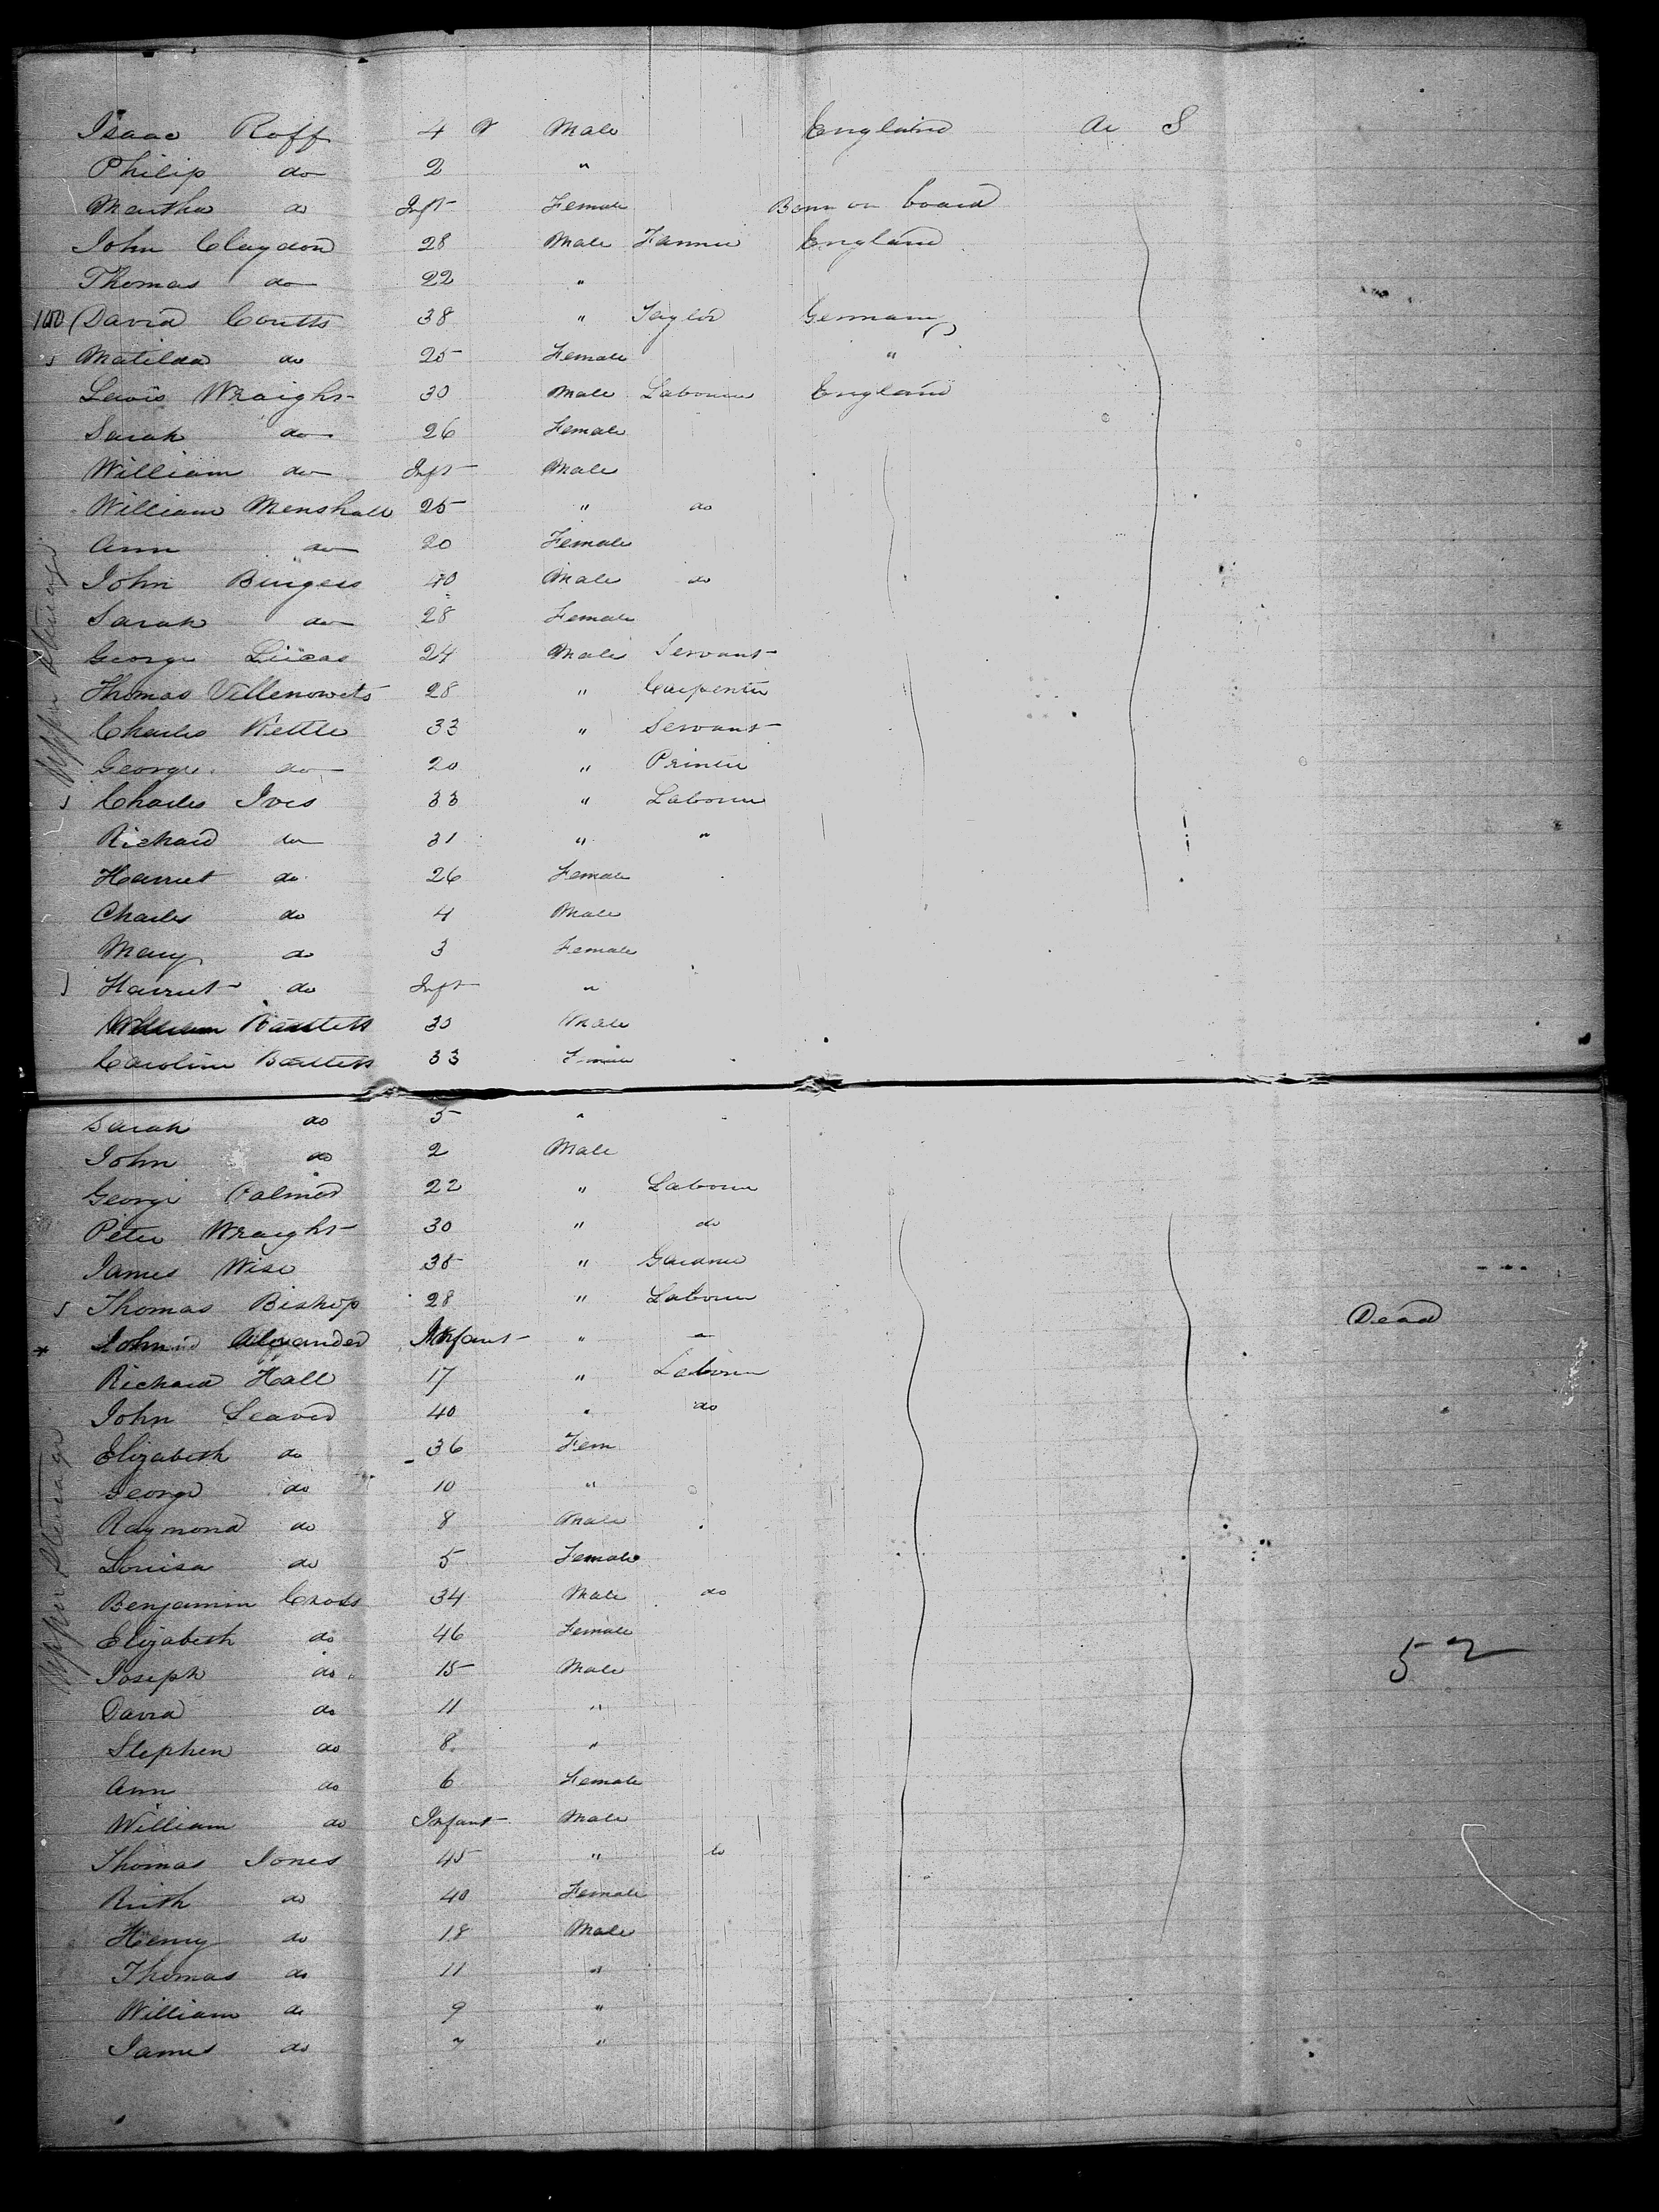 Isaac Roff 4 Male England do S
Philip do 2 "
Martha do Inft Female Born on board
John Claydon 28 Male Farmer England
Thomas do 22 "
100 David Coutts 38 " Taylor Germany
Matilda do 25 Female "
Lewis Wraight 30 Male Labourer England
Sarah do 26 Female
William do Inft Male
William Menshall 25 " do
Ann do 20 Female
John Burgess 40 Male do
Sarah do 28 Female
George Lucas 24 Male Servant
Thomas 28 " Carpenter
Charles Kettle 33 " Servant
George do 20 " Printer
Charles Ives 33 " Labourer
Richard do 31 " "
Harriet do 26 Female
Charles do 4 Male
Mary do 3 Female
Harriet do Inft "
William Bartlett 30 Male
Caroline Bartlett 33 Female
Sarah do 5 "
John do 2 Male
George Palmer 22 " Labourer
Peter Wraight 30 " do
James Wise 35 " Gardner
Thomas Bishop 28 " Labourer
* John Alexander Infant " Dead
Richard Hall 17 " Labourer
John Seaver 40 " do
Elizabeth do 36 Fem
George do 10 "
Raymond do 8 Male
Louisa do 5 Female
Benjamin Cross 34 Male do
Elizabeth do 46 Female
Joseph do 15 Male
David do 11 "
Stephen do 8 "
Ann do 6 Female
William do Infant Male
Thomas Jones 45 " do
Ruth do 40 Female
Henry do 18 Male
Thomas do 11 "
William do 9 "
James do 7 "
Upper Steerage
Upper Steerage
52